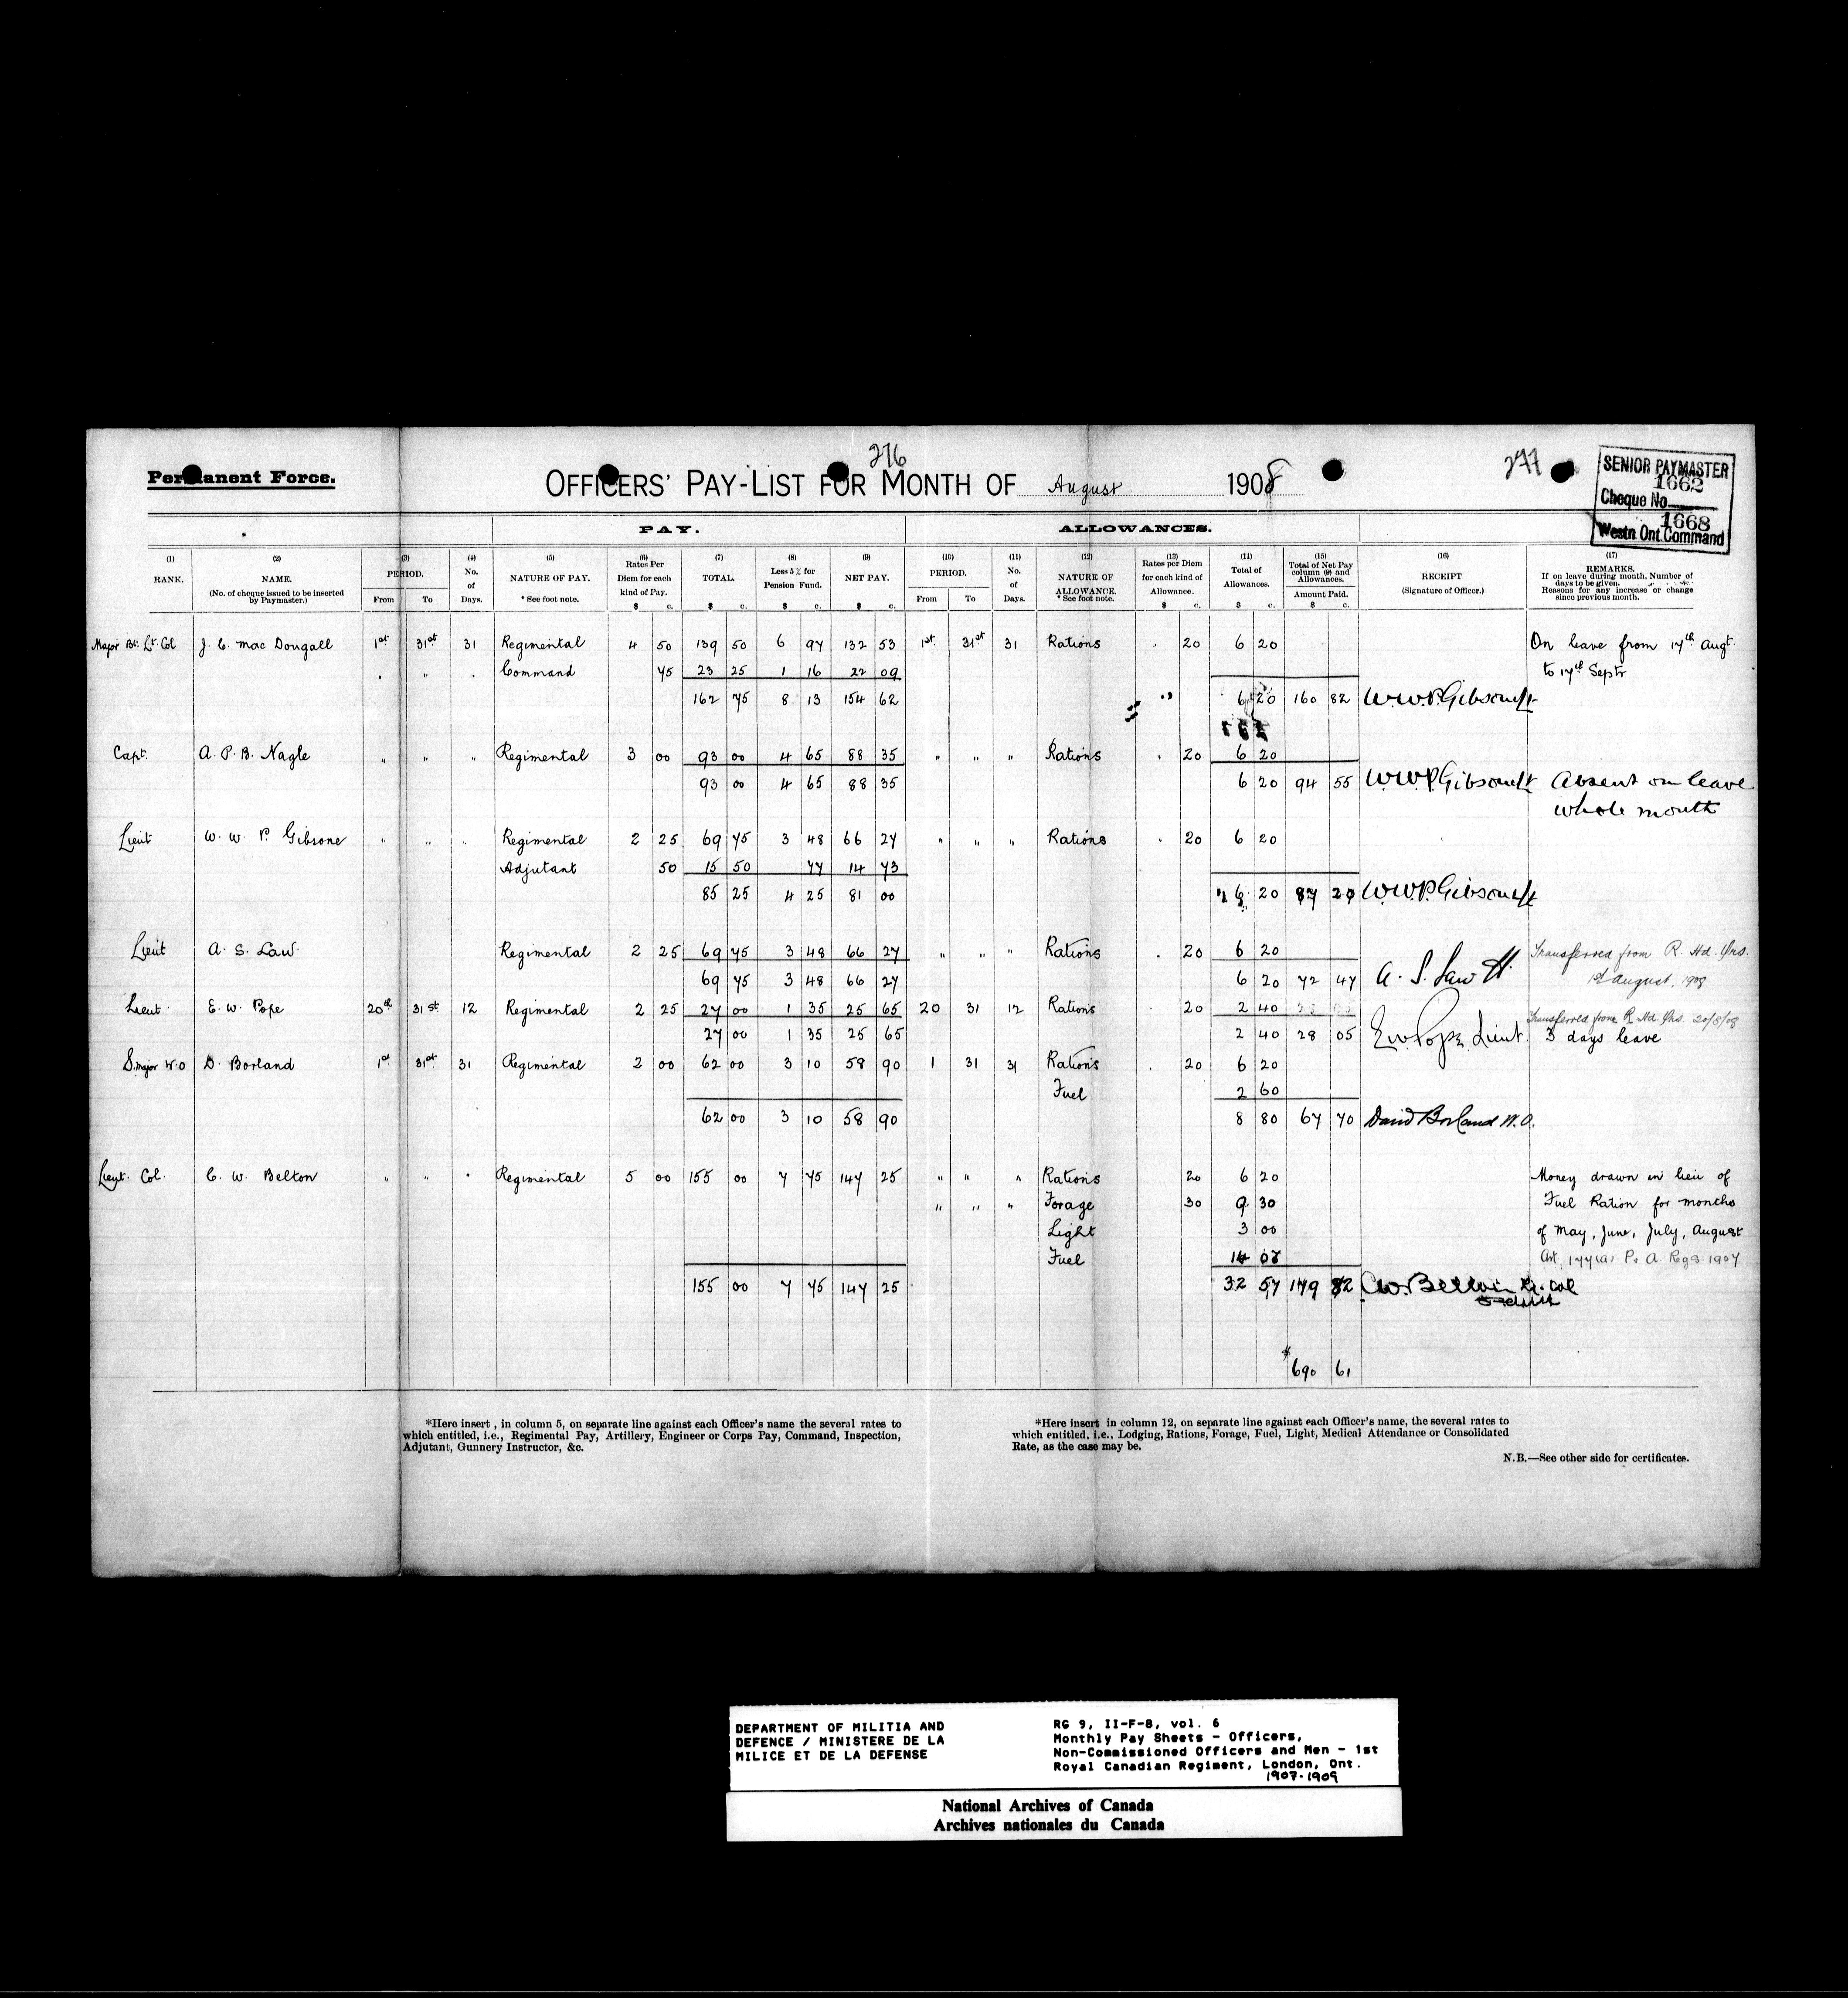 276
277
Permanent Force.
OFFICERS' PAY-LIST FOR MONTH OF August 1908
SENIOR PAYMASTER
1662
Cheque No
1668
Westn Ont Command
PAY. ALLOWANCES.
(1) RANK.
(2) NAME. (No. of cheque issued to be inserted by Paymaster.)
(3) PERIOD. From To
(4) No. of Days.
(5) NATURE OF PAY. * See foot note.
(6) Rates Per Diem for each kind of Pay. $ c.
(7) TOTAL. $ c.
(8) Less 5% for Pension Fund. $ c.
(9) NET PAY. $ c.
(10) PERIOD. From To
(11) No. of Days.
(12) NATURE OF ALLOWANCE. * See foot note.
(13) Rates per Diem for each kind of Allowance. $ c.
(14) Total of Allowances. $ c.
(15) Total of Net Pay column (9) and Allowances. Amount Paid. $ c.
(16) RECEIPT (Signature of Officer.)
(17) REMARKS. If on leave during month, Number of days to be given. Reasons for any increase or change since previous month.
Major Bt. Lt. Col J. C. Mac Dougall 1st 31st 31 Regimental 4 50 139 50 6 97 132 53 1st 31st 31 Rations . 20 6 20 On leave from 17th Augt
. " . Command 75 23 25 1 16 22 09 to 17th Septr
162 75 8 13 154 62 6 20 160 82 W.W.P. Gibsone Lt
Capt. A. P. B. Nagle " " " Regimental 3 00 93 00 4 65 88 35 " " " Rations . 20 6 20
93 00 4 65 88 35 6 20 94 55 W.W.P. Gibsone Lt Absent on leave
whole month
Lieut W. W. P. Gibsone " " " Regimental 2 25 69 75 3 48 66 27 " " " Rations . 20 6 20
Adjutant 50 15 50 77 14 73
85 25 4 25 81 00 6 20 87 20 W.W.P. Gibsone Lt
Lieut A. S. Law Regimental 2 25 69 75 3 48 66 27 " " " Rations . 20 6 20 Transferred from R. Hd. Qrs.
69 75 3 48 66 27 6 20 72 47 A. S. Law Lt 1st August, 1908
Lieut E. W. Pope 20th 31st 12 Regimental 2 25 27 00 1 35 25 65 20 31 12 Rations . 20 2 40 Transferred from R. Hd. Qrs. 20/8/08
27 00 1 35 25 65 2 40 28 05 E W Pope Lieut. 3 days leave
S. Major W.O D. Borland 1st 31st 31 Regimental 2 00 62 00 3 10 58 90 1 31 31 Rations . 20 6 20
Fuel 2 60
62 00 3 10 58 90 8 80 67 70 David Borland W.O.
Lieut. Col. C. W. Belton " " " Regimental 5 00 155 00 7 75 147 25 " " " Rations 20 6 20 Money drawn in lieu of
" " " Forage 30 9 30 Fuel Ration for months
Light 3 00 of May, June, July, August
Fuel 14 07 Art. 177(a) P. A. Regs. 1907
155 00 7 75 147 25 32 57 179 82 C.W. Belton Lt. Col
$ 690 61
*Here insert, in column 5, on separate line against each Officer's name the several rates to
which entitled, i.e., Regimental Pay, Artillery, Engineer or Corps Pay, Command, Inspection,
Adjutant, Gunnery Instructor, &c.
*Here insert in column 12, on separate line against each Officer's name, the several rates to
which entitled, i.e., Lodging, Rations, Forage, Fuel, Light, Medical Attendance or Consolidated
Rate, as the case may be.
N.B.—See other side for certificates.
DEPARTMENT OF MILITIA AND
DEFENCE / MINISTERE DE LA
MILICE ET DE LA DEFENSE
RG 9, II-F-8, vol. 6
Monthly Pay Sheets - Officers,
Non-Commissioned Officers and Men - 1st
Royal Canadian Regiment, London, Ont.
1907-1909
National Archives of Canada
Archives nationales du Canada